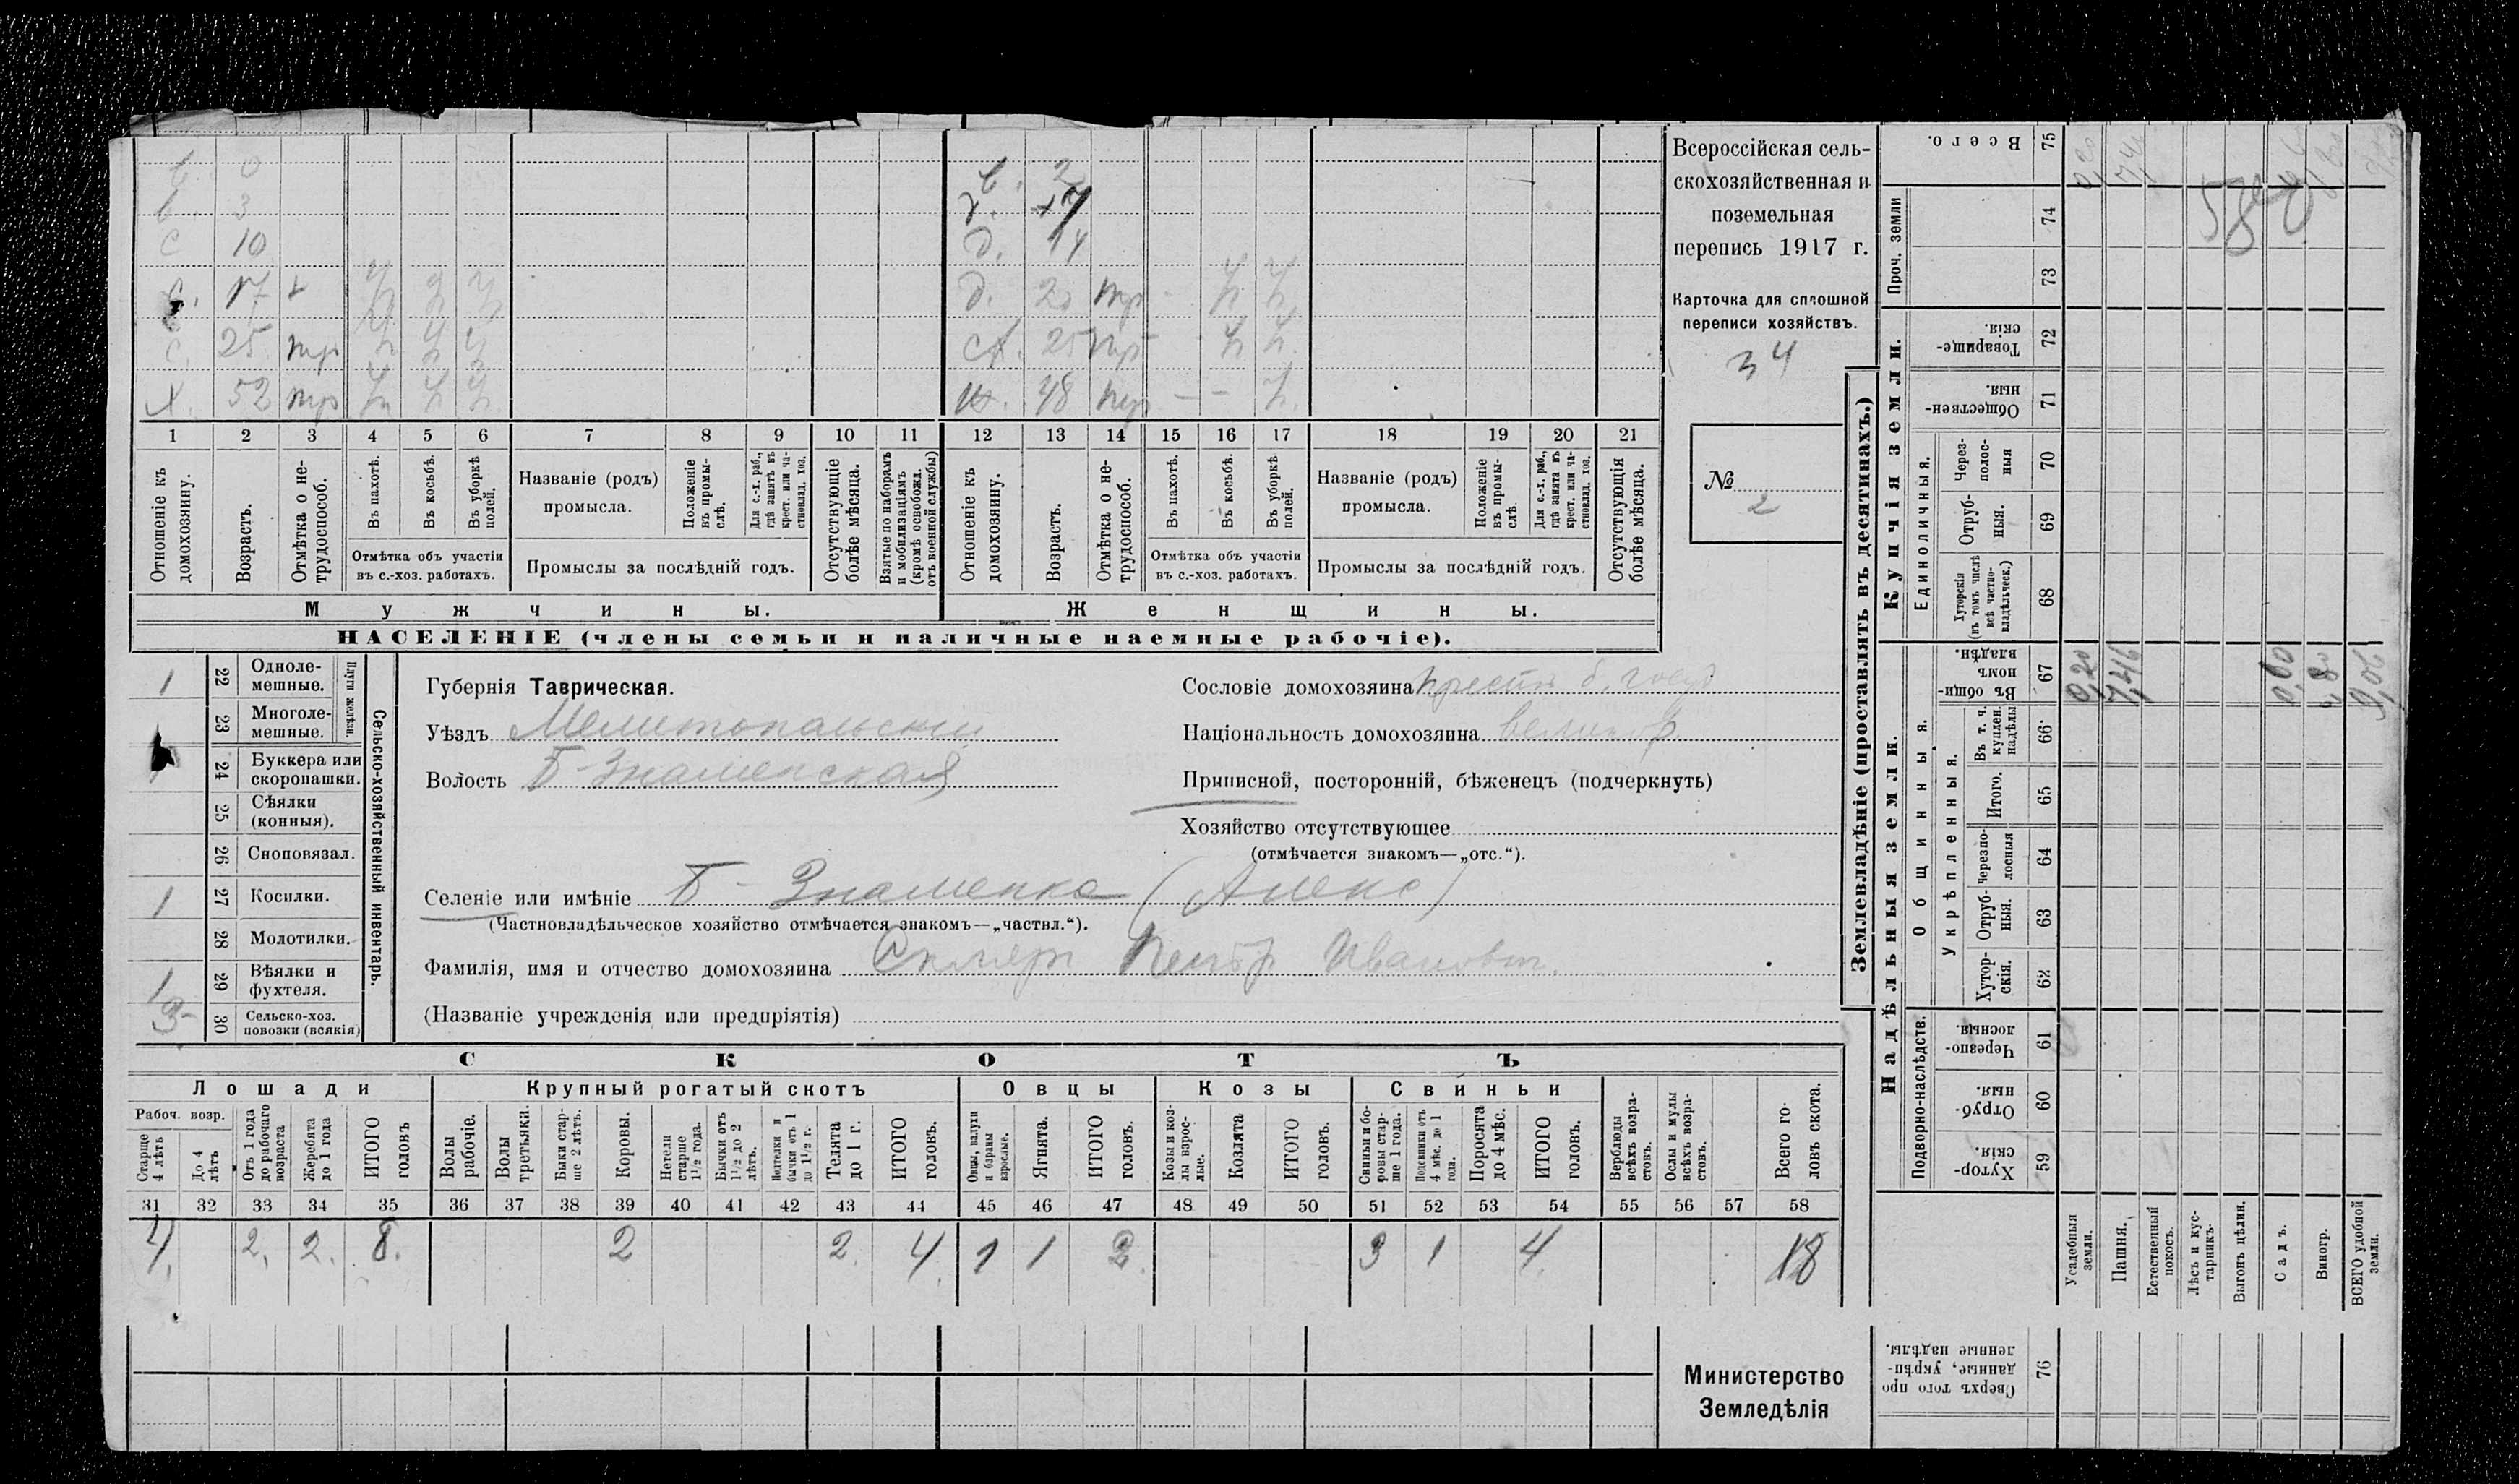 с. 0 в. 2
с. 3 д. 7
с 10 д. 14
с. 17 д. 20 нтр - h h
с. 25 нтр h h h 25 нтр - h h
х. 52 нтр h h h ж. 48 нтр — — h
1 2 3 4 5 6 7 8 9 10 11 12 13 14 15 16 17 18 19 20 21
Отношеніе къ домохозяину.
Возрастъ.
Отмѣтка о не-трудоспособ.
Въ пахотѣ.
Въ косьбѣ.
Въ уборкѣ полей.
Отмѣтка объ участіи
въ с.-хоз. работахъ.
Названіе (родъ)
промысла.
Положеніе въ промы-слѣ.
Для с.-х. раб., гдѣ занятъ въ крест. или ча-стновлад. хоз.
Промыслы за послѣдній годъ.
Отсутствующіе болѣе мѣсяца.
Взятые по наборамъ и мобилизаціямъ (кромѣ освобожд. отъ военной службы)
Отношеніе къ домохозяину.
Возрастъ.
Отмѣтка о не-трудоспособ.
Въ пахотѣ.
Въ косьбѣ.
Въ уборкѣ полей.
Отмѣтка объ участіи
въ с.-хоз. работахъ.
Названіе (родъ)
промысла.
Положеніе въ промы-слѣ.
Для с.-х. раб., гдѣ занята въ крест. или ча-стновлад. хоз.
Промыслы за послѣдній годъ.
Отсутствующія болѣе мѣсяца.
Мужчины.
Женщины.
НАСЕЛЕНІЕ (члены семьи и наличные наемные рабочіе).
Всероссійская сель-
скохозяйственная и
поземельная
перепись 1917 г.
Карточка для сплошной
переписи хозяйствъ.
34
№
2
1 22 Одноле-мешные.
23 Многоле-мешные.
Плуги желѣзн.
24 Буккера или скоропашки.
25 Сѣялки (конныя).
26 Сноповязал.
1 27 Косилки.
28 Молотилки.
1 29 Вѣялки и фухтеля.
3 30 Сельско-хоз. повозки (всякія)
Сельско-хозяйственный инвентарь.
Губернія Таврическая.
Уѣздъ Мелитопольскій
Волость Б-Знаменская
Селеніе или имѣніе Б-Знаменка (Алекс)
(Частновладѣльческое хозяйство отмѣчается знакомъ—„частвл.“).
Фамилія, имя и отчество домохозяина Скляръ Петръ Ивановъ.
(Названіе учрежденія или предпріятія)
Сословіе домохозяина крестн б. госуд
Національность домохозяина великор
Приписной, посторонній, бѣженецъ (подчеркнуть)
Хозяйство отсутствующее
(отмѣчается знакомъ—„отс.“).
СКОТЪ
Лошади
Крупный рогатый скотъ
Овцы
Козы
Свиньи
Рабоч. возр.
Старше 4 лѣтъ
До 4 лѣтъ
Отъ 1 года до рабочаго возраста
Жеребята до 1 года
ИТОГО головъ
Волы рабочіе.
Волы третьяки.
Быки стар-ше 2 лѣтъ.
Коровы.
Нетели старше 1½ года.
Бычки отъ 1½ до 2 лѣтъ.
Подтелки и бычки отъ 1 до 1½ г.
Телята до 1 г.
ИТОГО головъ.
Овцы, валухи и бараны взрослые.
Ягнята.
ИТОГО головъ.
Козы и коз-лы взрос-лые.
Козлята
ИТОГО головъ.
Свиньи и бо-ровы стар-ше 1 года.
Подсвинки отъ 4 мѣс. до 1 года.
Поросята до 4 мѣс.
ИТОГО головъ.
Верблюды всѣхъ возра-стовъ.
Ослы и мулы всѣхъ возра-стовъ.
Всего го-ловъ скота.
31 32 33 34 35 36 37 38 39 40 41 42 43 44 45 46 47 48 49 50 51 52 53 54 55 56 57 58
4. 2. 2. 8. 2 2. 4 1 1 2. 3 1 4. 18
Министерство
Земледѣлія
Землевладѣніе (проставлять въ десятинахъ.)
Всего. 75 0,20 7,46
Проч. земли 74
73
Купчія земли.
Товарище-скія. 72
Обществен-ныя. 71
Единоличныя.
Через-полос-ныя 70
Отруб-ныя. 69
Хуторскія (въ томъ числѣ всѣ частно-владѣльческ.) 68
Надѣльныя земли.
Общинныя.
Въ общин-номъ владѣн. 67 0,20 7,46 0,60 0,80 9,06
Укрѣпленныя.
Въ т. ч. куплен. надѣлы 66
Итого. 65
Черезпо-лосныя 64
Отруб-ныя. 63
Хутор-скія. 62
Подворно-наслѣдств.
Черезпо-лосныя. 61
Отруб-ныя. 60
Хутор-скія. 59
Усадебныя земли.
Пашня.
Естественный покосъ.
Лѣсъ и кус-тарникъ.
Выгонъ цѣлин.
Садъ.
Виногр.
ВСЕГО удобной земли.
Сверхъ того про-данные, укрѣп-ленные надѣлы. 76